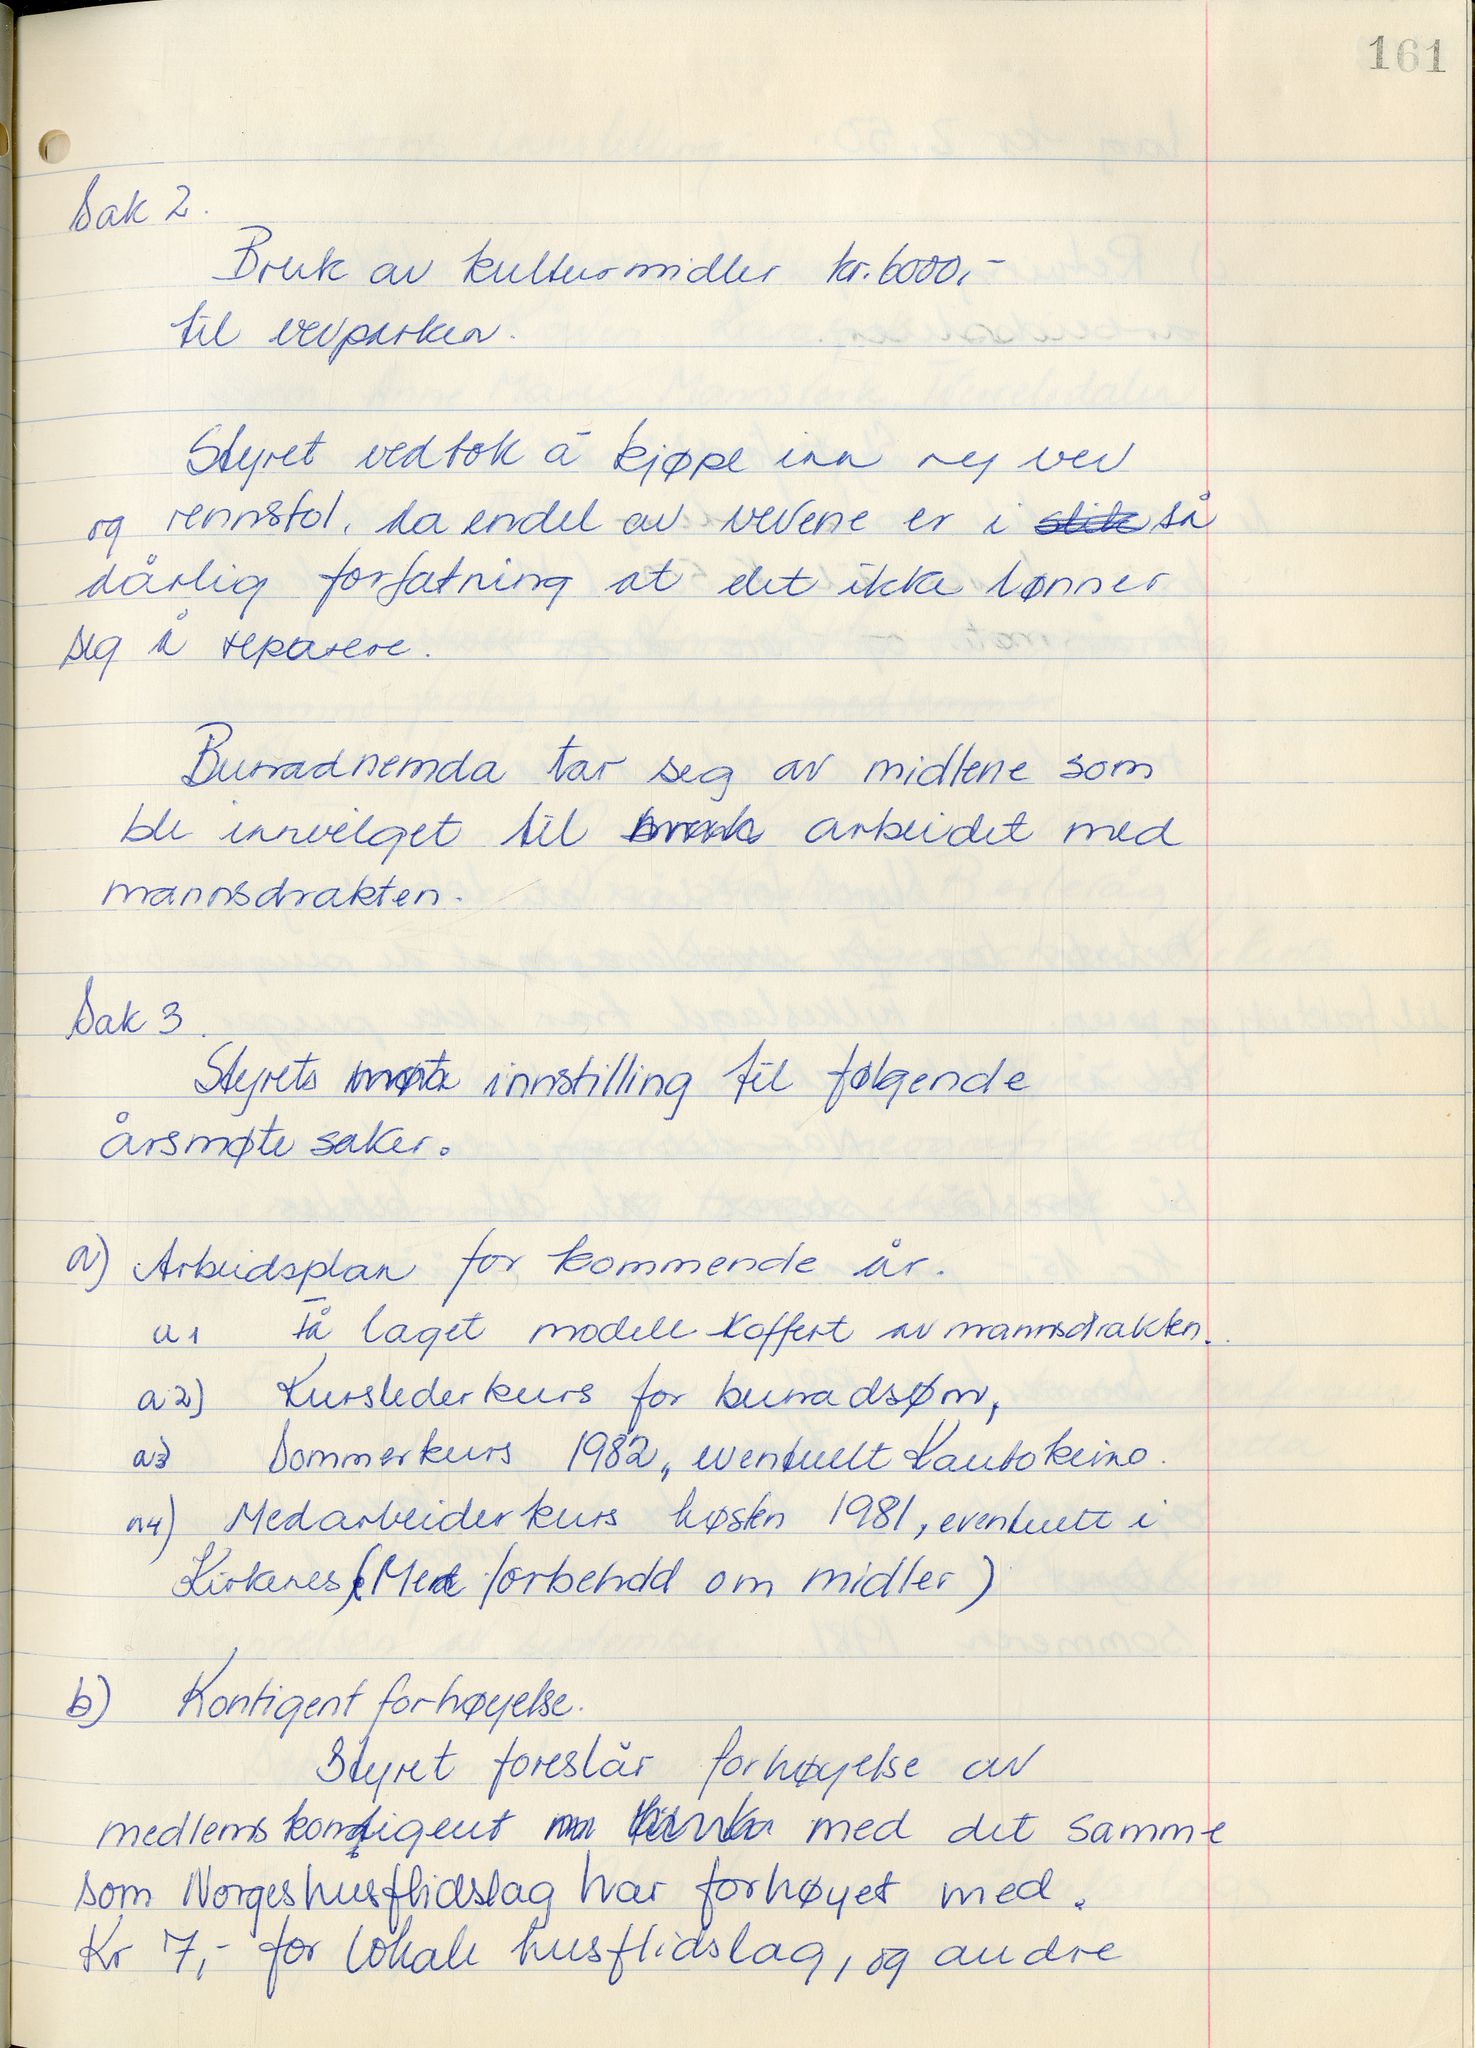 161
Sak 2.
Bruk av kulturmidler kr. 6000,-
til vevparken.
Styret vedtok å kjøpe inn ny vev
og rennstol, da endel av vevene er i slik så
dårlig forfatning at det ikke lønner
seg å reparere.
Bunadnemda tar seg av midlene som
ble innvilget til arbeidet med
mannsdrakten.
Sak 3.
Styrets innstilling til følgende
årsmøte saker.
a) Arbeidsplan for kommende år.
a1 Få laget modell koffert av mannsdrakten.
a2) Kurslederkurs for bunadsøm,
a3 Sommerkurs 1982, eventuelt Kautokeino.
a4) Medarbeiderkurs høsten 1981, eventuett i
Kirkenes (Med forbehold om midler)
b) Kontigent forhøyelse.
Styret foreslår forhøyelse av
medlemskontigent med det samme
som Norges husflidslag har forhøyet med.
Kr 7,- for lokale husflidslag, og andre